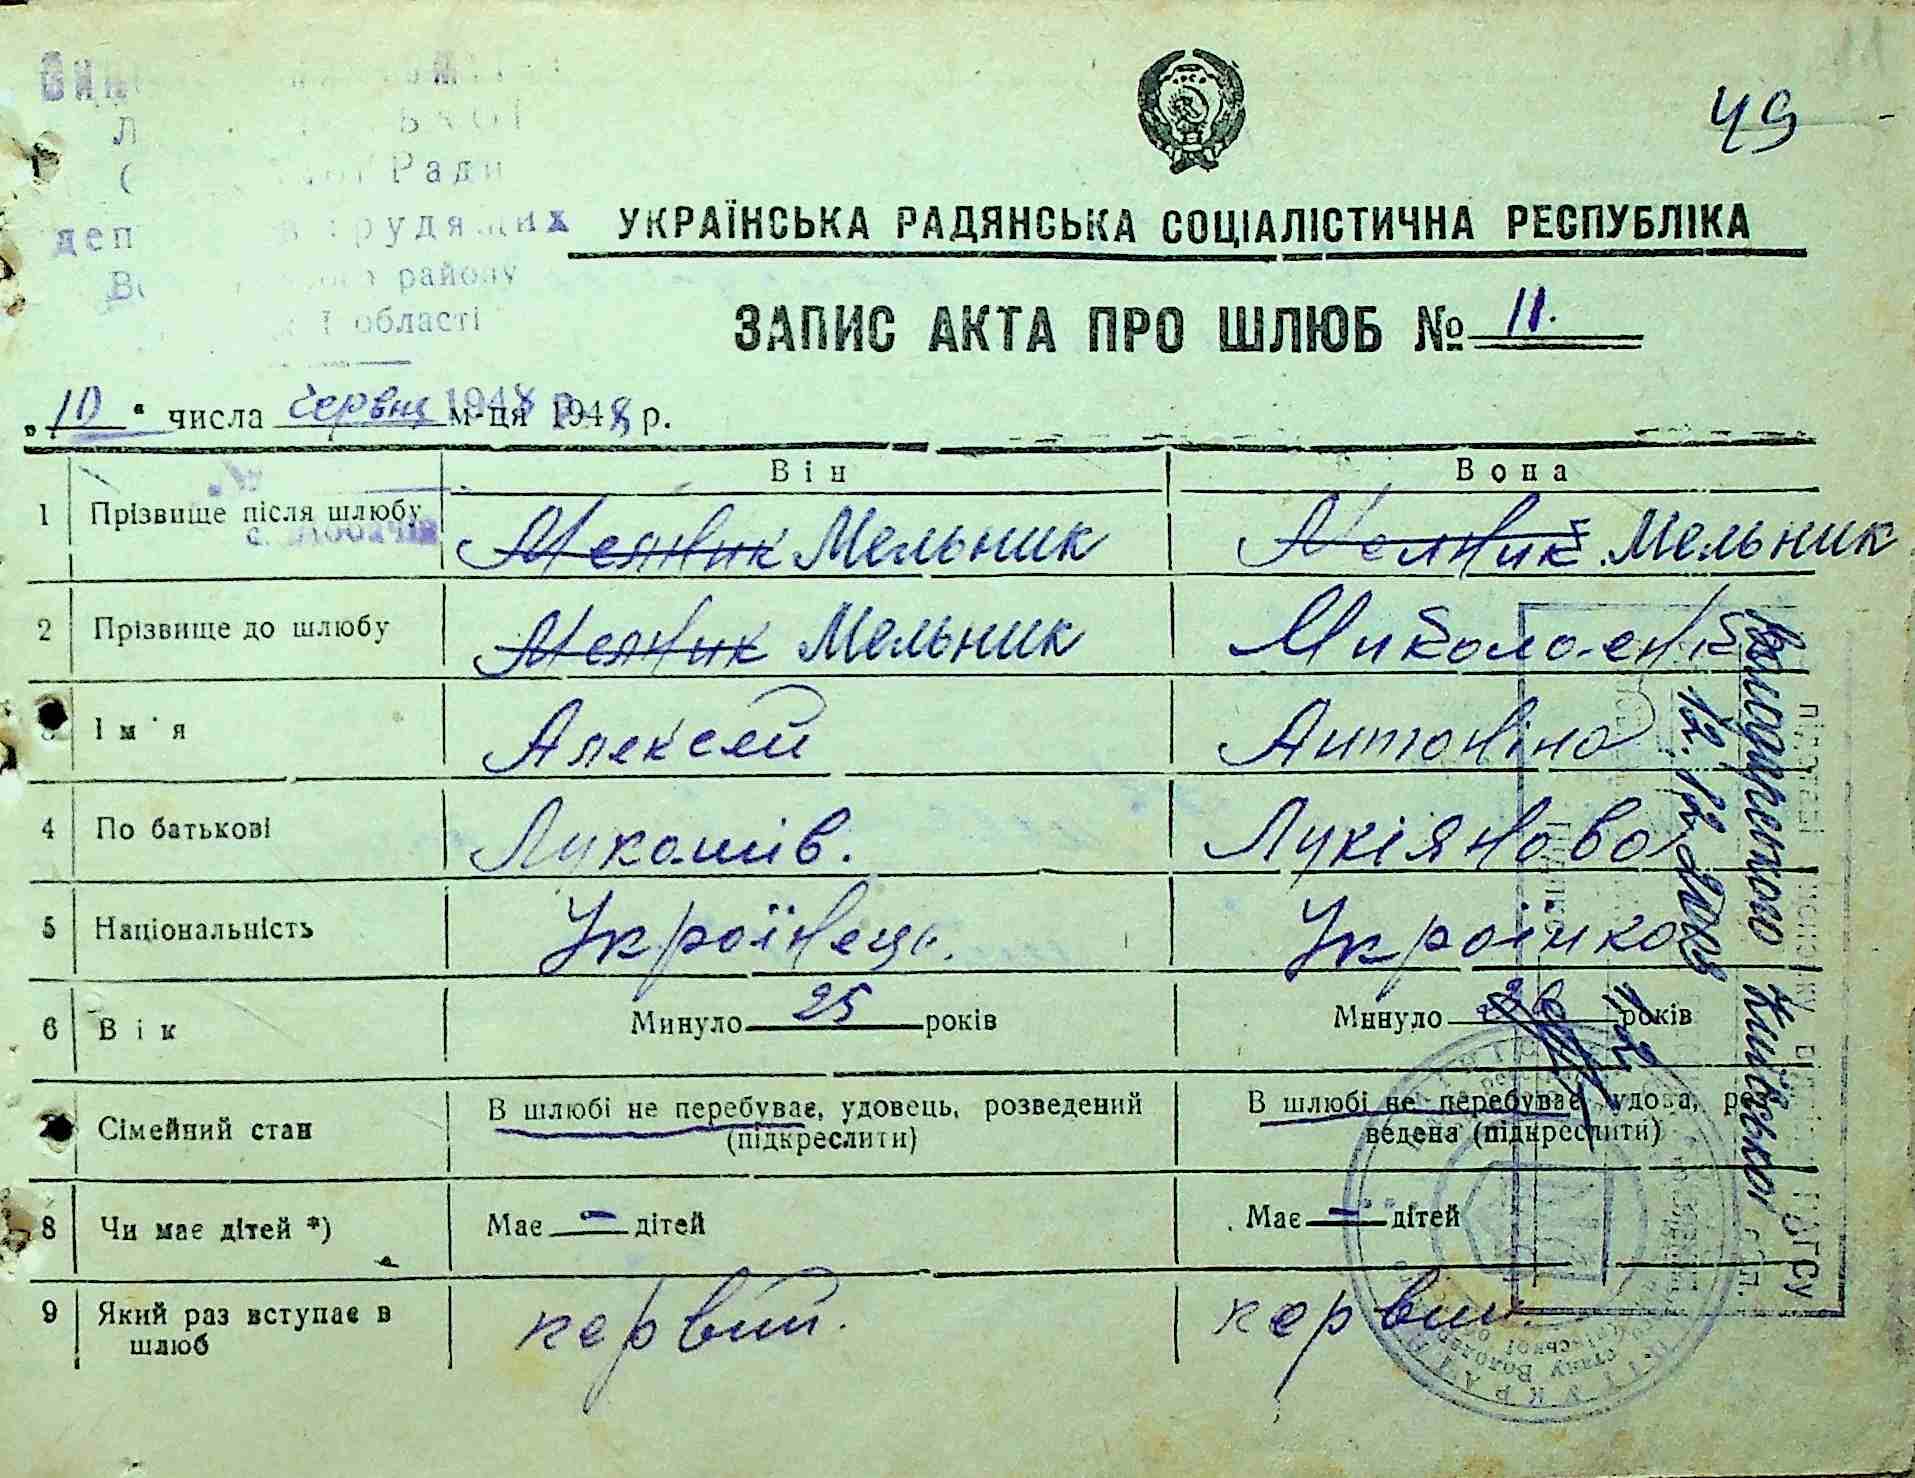 49
Ради
районy
області
УКРАЇНСЬКА РАДЯНСЬКА СОЦІАЛІСТИЧНА РЕСПУБЛІКА
ЗАПИС АКТА ПРО ШЛЮБ № 11.
„10" числа червня м-ця 1948 р.
Він Вона
1 Прізвище після шлюбу Мелник Мельник Мелник Мельник
2 Прізвище до шлюбу Мелник Мельник Миколаенко
3 Ім'я Алексей Антоніна
4 По батькові Лукашів. Лукіянова
5 Національність Україінець. Украінка
6 Вік Минуло 25 років Минуло років
7 Сімейний стан В шлюбі не перебуває, удовець, розведений В шлюбі не перебуває, удова, роз-
(підкреслити) ведена (підкреслити)
8 Чи має дітей *) Має — дітей Має — дітей
9 Який раз вступає в первий. первий.
шлюб
Володарського Київської
12.12.2002